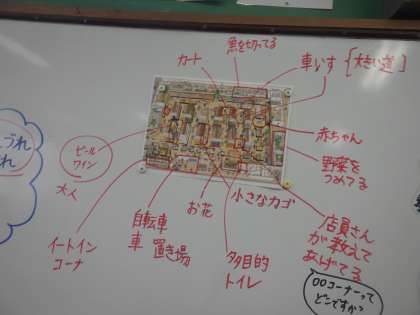 魚を切ってる
カート
車いす [大きい道]
赤ちゃん
野菜を
つめてる
うれ
れ
ビール
ワイン
大人
イートイン
コーナ
自転車
車 置き場
お花
小さなカゴ
多目的
トイレ
店員さん
が教えて
あげてる
○○コーナーって
どこですか?